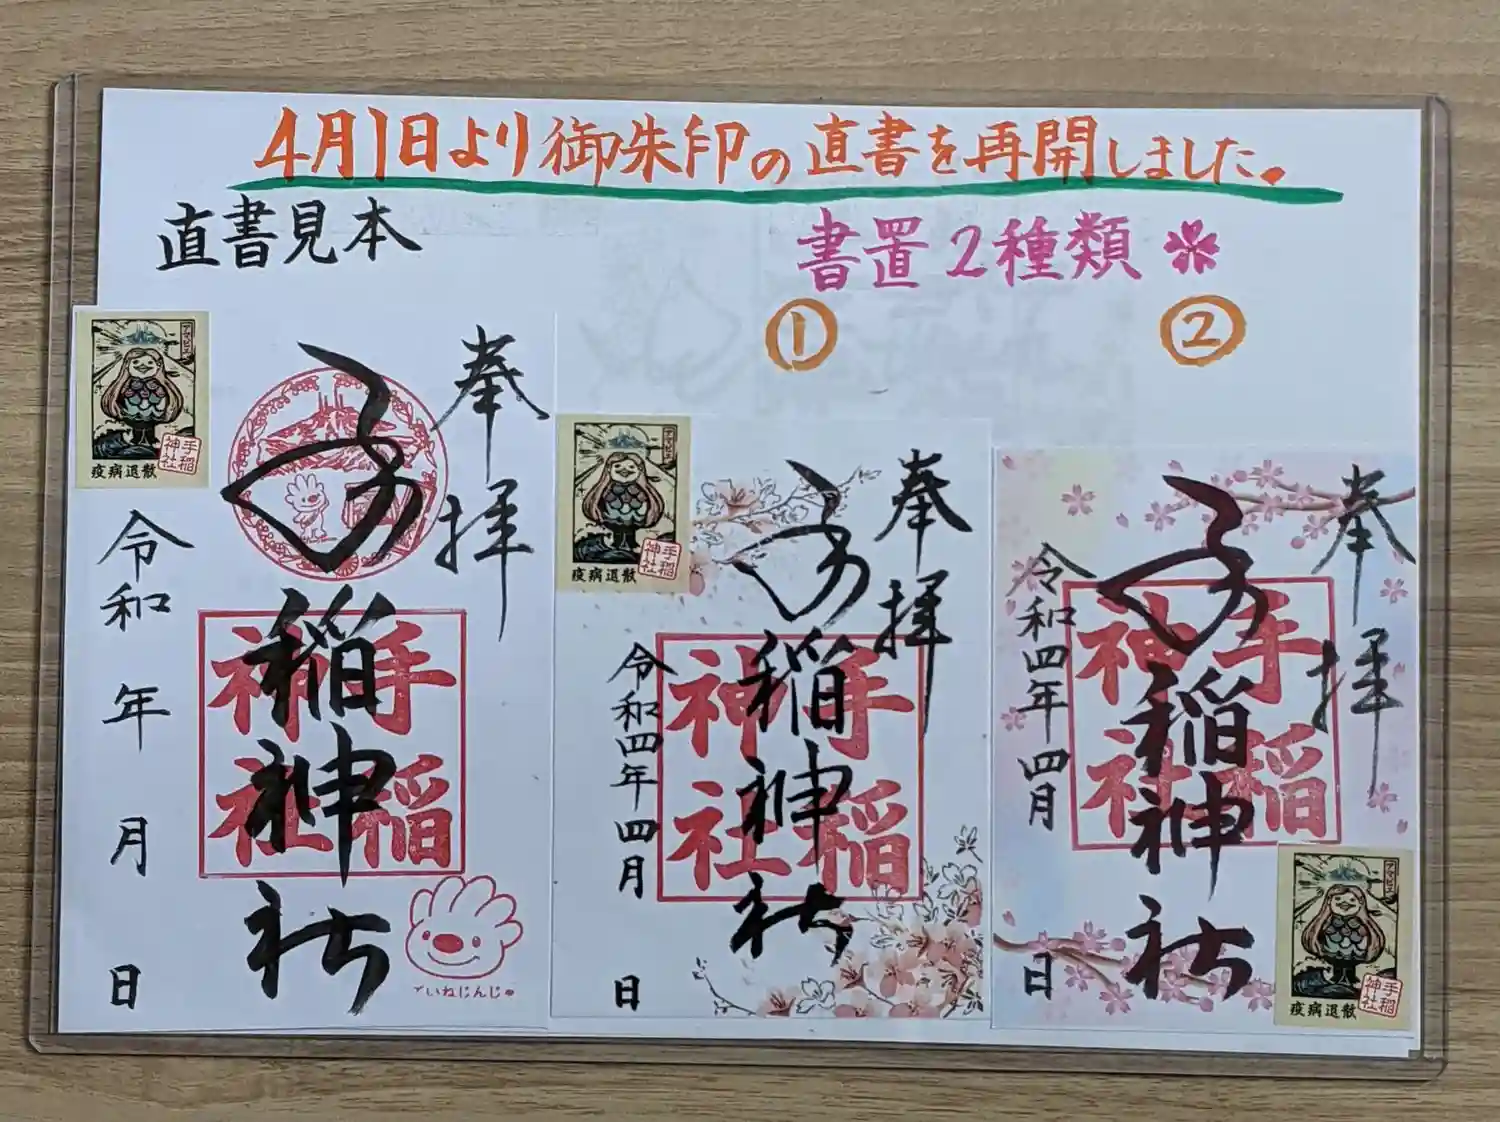 4月1日より御朱印の直書を再開しました。
直書見本
書置2種類
①
②
アマビエ
手稲
神社
疫病退散
奉拝
手稲神社
手稲
神社
令和 年 月 日
ていねじんじゃ
アマビエ
手稲
神社
疫病退散
奉拝
手稲神社
手稲
神社
令和四年四月 日
奉拝
手稲神社
手稲
神社
令和四年四月 日
アマビエ
手稲
神社
疫病退散